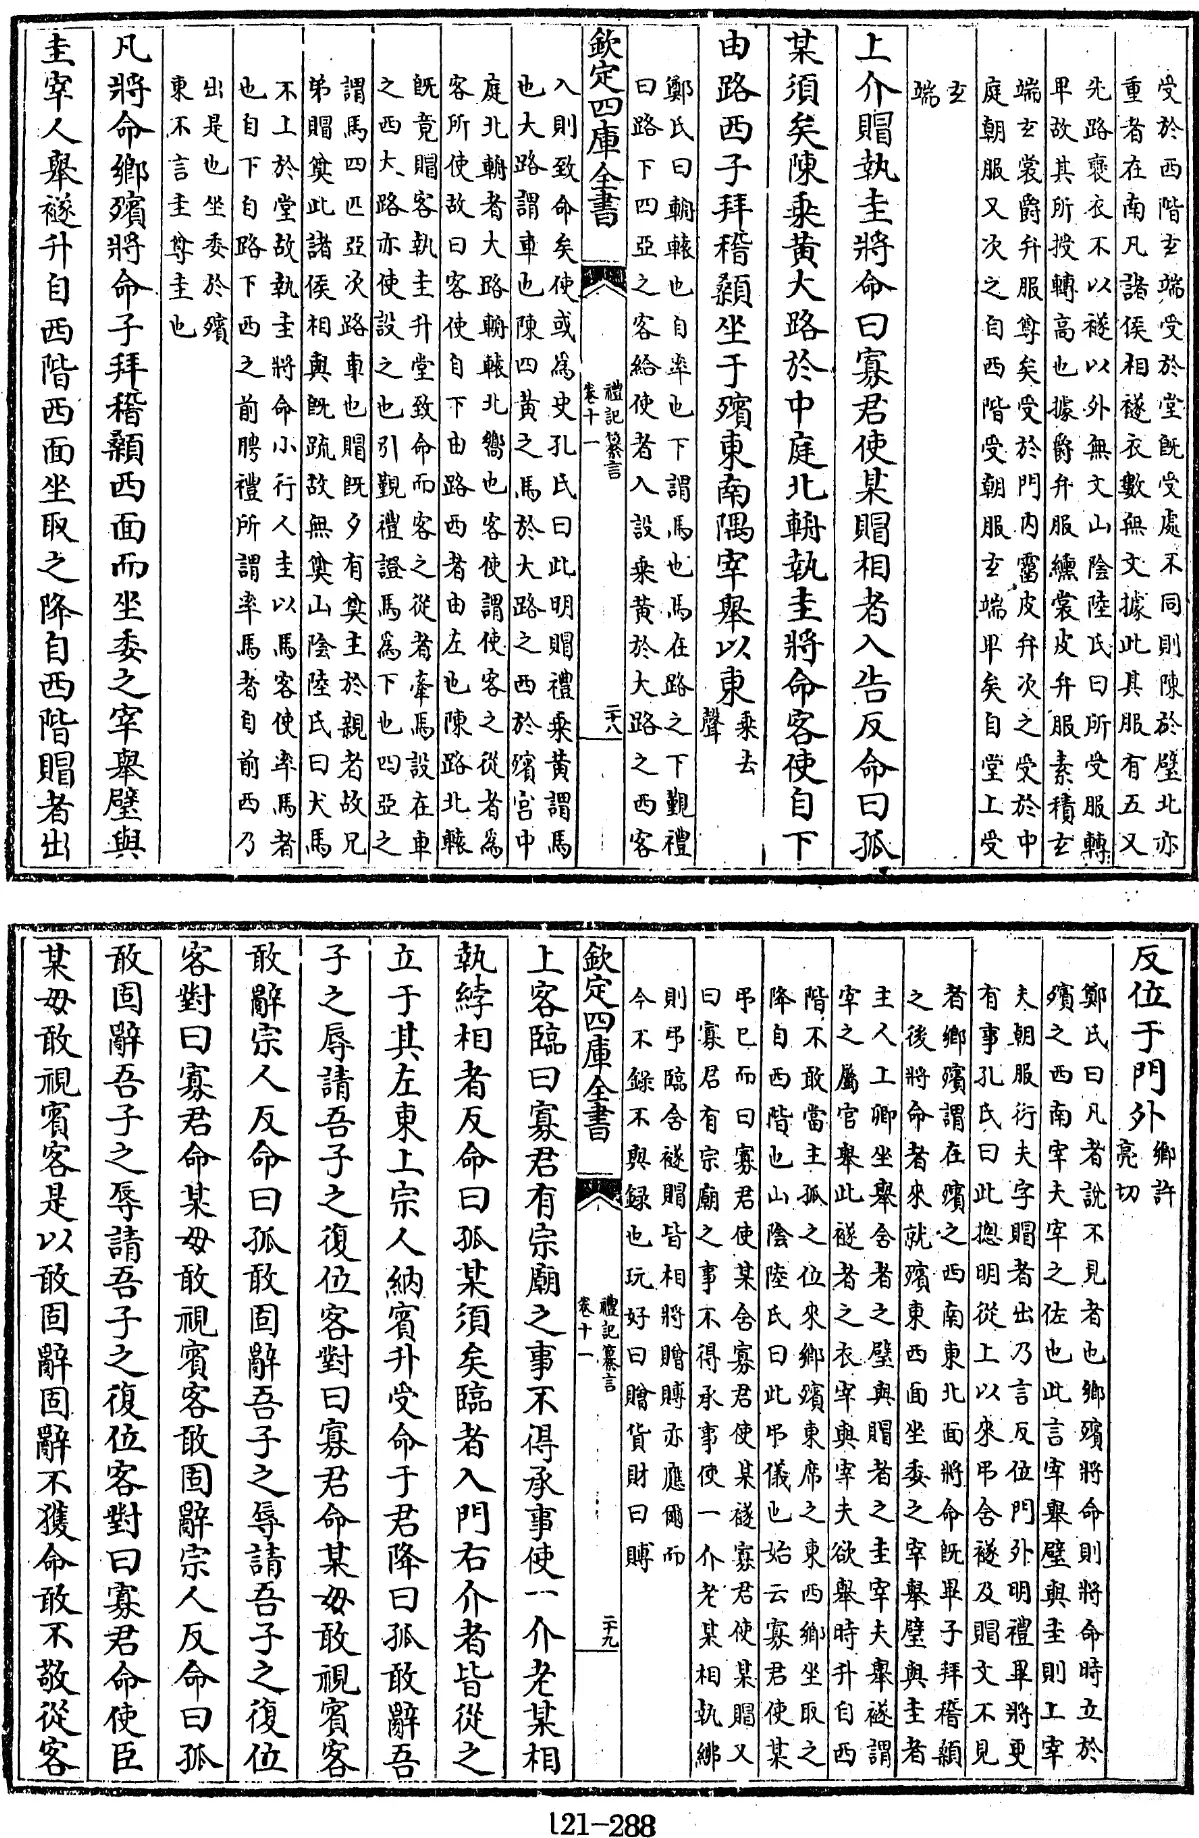 受於西階玄端受於堂既受處不同則陳於璧北亦
重者在南凡諸侯相襚衣數無文據此其服有五又
先路褻衣不以襚以外無文山陰陸氏曰所受服轉
卑故其所授轉高也據爵弁服纁裳皮弁服素積玄
端玄裳爵弁服尊矣受於門內霤皮弁次之受於中
庭朝服又次之自西階受朝服玄端卑矣自堂上受
玄
端
上介賵執圭將命曰寡君使某賵相者入告反命曰孤
某須矣陳乘黃大路於中庭北輈執圭將命客使自下
由路西子拜稽顙坐于殯東南隅宰舉以東乘去聲
鄭氏曰輈轅也自率也下謂馬也馬在路之下覲禮
曰路下四亞之客給使者入設乘黃於大路之西客
欽定四庫全書
禮記纂言
卷十一
二十八
入則致命矣使或為史孔氏曰此明賵禮乘黃謂馬
也大路謂車也陳四黃之馬於大路之西於殯宮中
庭北輈者大路輈轅北嚮也客使謂使客之從者為
客所使故曰客使自下由路西者由左也陳路北轅
既竟賵客執圭升堂致命而客之從者牽馬設在車
之西大路亦使設之也引覲禮證馬為下也四亞之
謂馬四匹亞次路車也賵既夕有奠主於親者故兄
弟賵奠此諸侯相與既疏故無奠山陰陸氏曰犬馬
不上於堂故執圭將命小行人圭以馬客使率馬者
也自下自路下西之前聘禮所謂率馬者自前西乃
出是也坐委於殯
東不言圭尊圭也
凡將命鄉殯將命子拜稽顙西面而坐委之宰舉璧與
圭宰人舉襚升自西階西面坐取之降自西階賵者出
反位于門外鄉許亮切
鄭氏曰凡者說不見者也鄉殯將命則將命時立於
殯之西南宰夫宰之佐也此言宰舉璧與圭則上宰
夫朝服衍夫字賵者出乃言反位門外明禮畢將更
有事孔氏曰此摠明從上以來弔含襚及賵文不見
者鄉殯謂在殯之西南東北面將命既畢子拜稽顙
之後將命者來就殯東西面坐委之宰舉璧與圭者
主人上卿坐舉含者之璧與賵者之圭宰夫舉襚謂
宰之屬官舉此襚者之衣宰與宰夫欲舉時升自西
階不敢當主孤之位來鄉殯東席之東西鄉坐取之
降自西階也山陰陸氏曰此弔儀也始云寡君使某
弔已而曰寡君使某含寡君使某襚寡君使某賵又
曰寡君有宗廟之事不得承事使一介老某相執綍
則弔臨含襚賵皆相將贈賻亦應爾而
今不錄不與錄也玩好曰贈貨財曰賻
欽定四庫全書
禮記纂言
卷十一
二十九
上客臨曰寡君有宗廟之事不得承事使一介老某相
執綍相者反命曰孤某須矣臨者入門右介者皆從之
立于其左東上宗人納賓升受命于君降曰孤敢辭吾
子之辱請吾子之復位客對曰寡君命某毋敢視賓客
敢辭宗人反命曰孤敢固辭吾子之辱請吾子之復位
客對曰寡君命某毋敢視賓客敢固辭宗人反命曰孤
敢固辭吾子之辱請吾子之復位客對曰寡君命使臣
某毋敢視賓客是以敢固辭固辭不獲命敢不敬從客
121-288